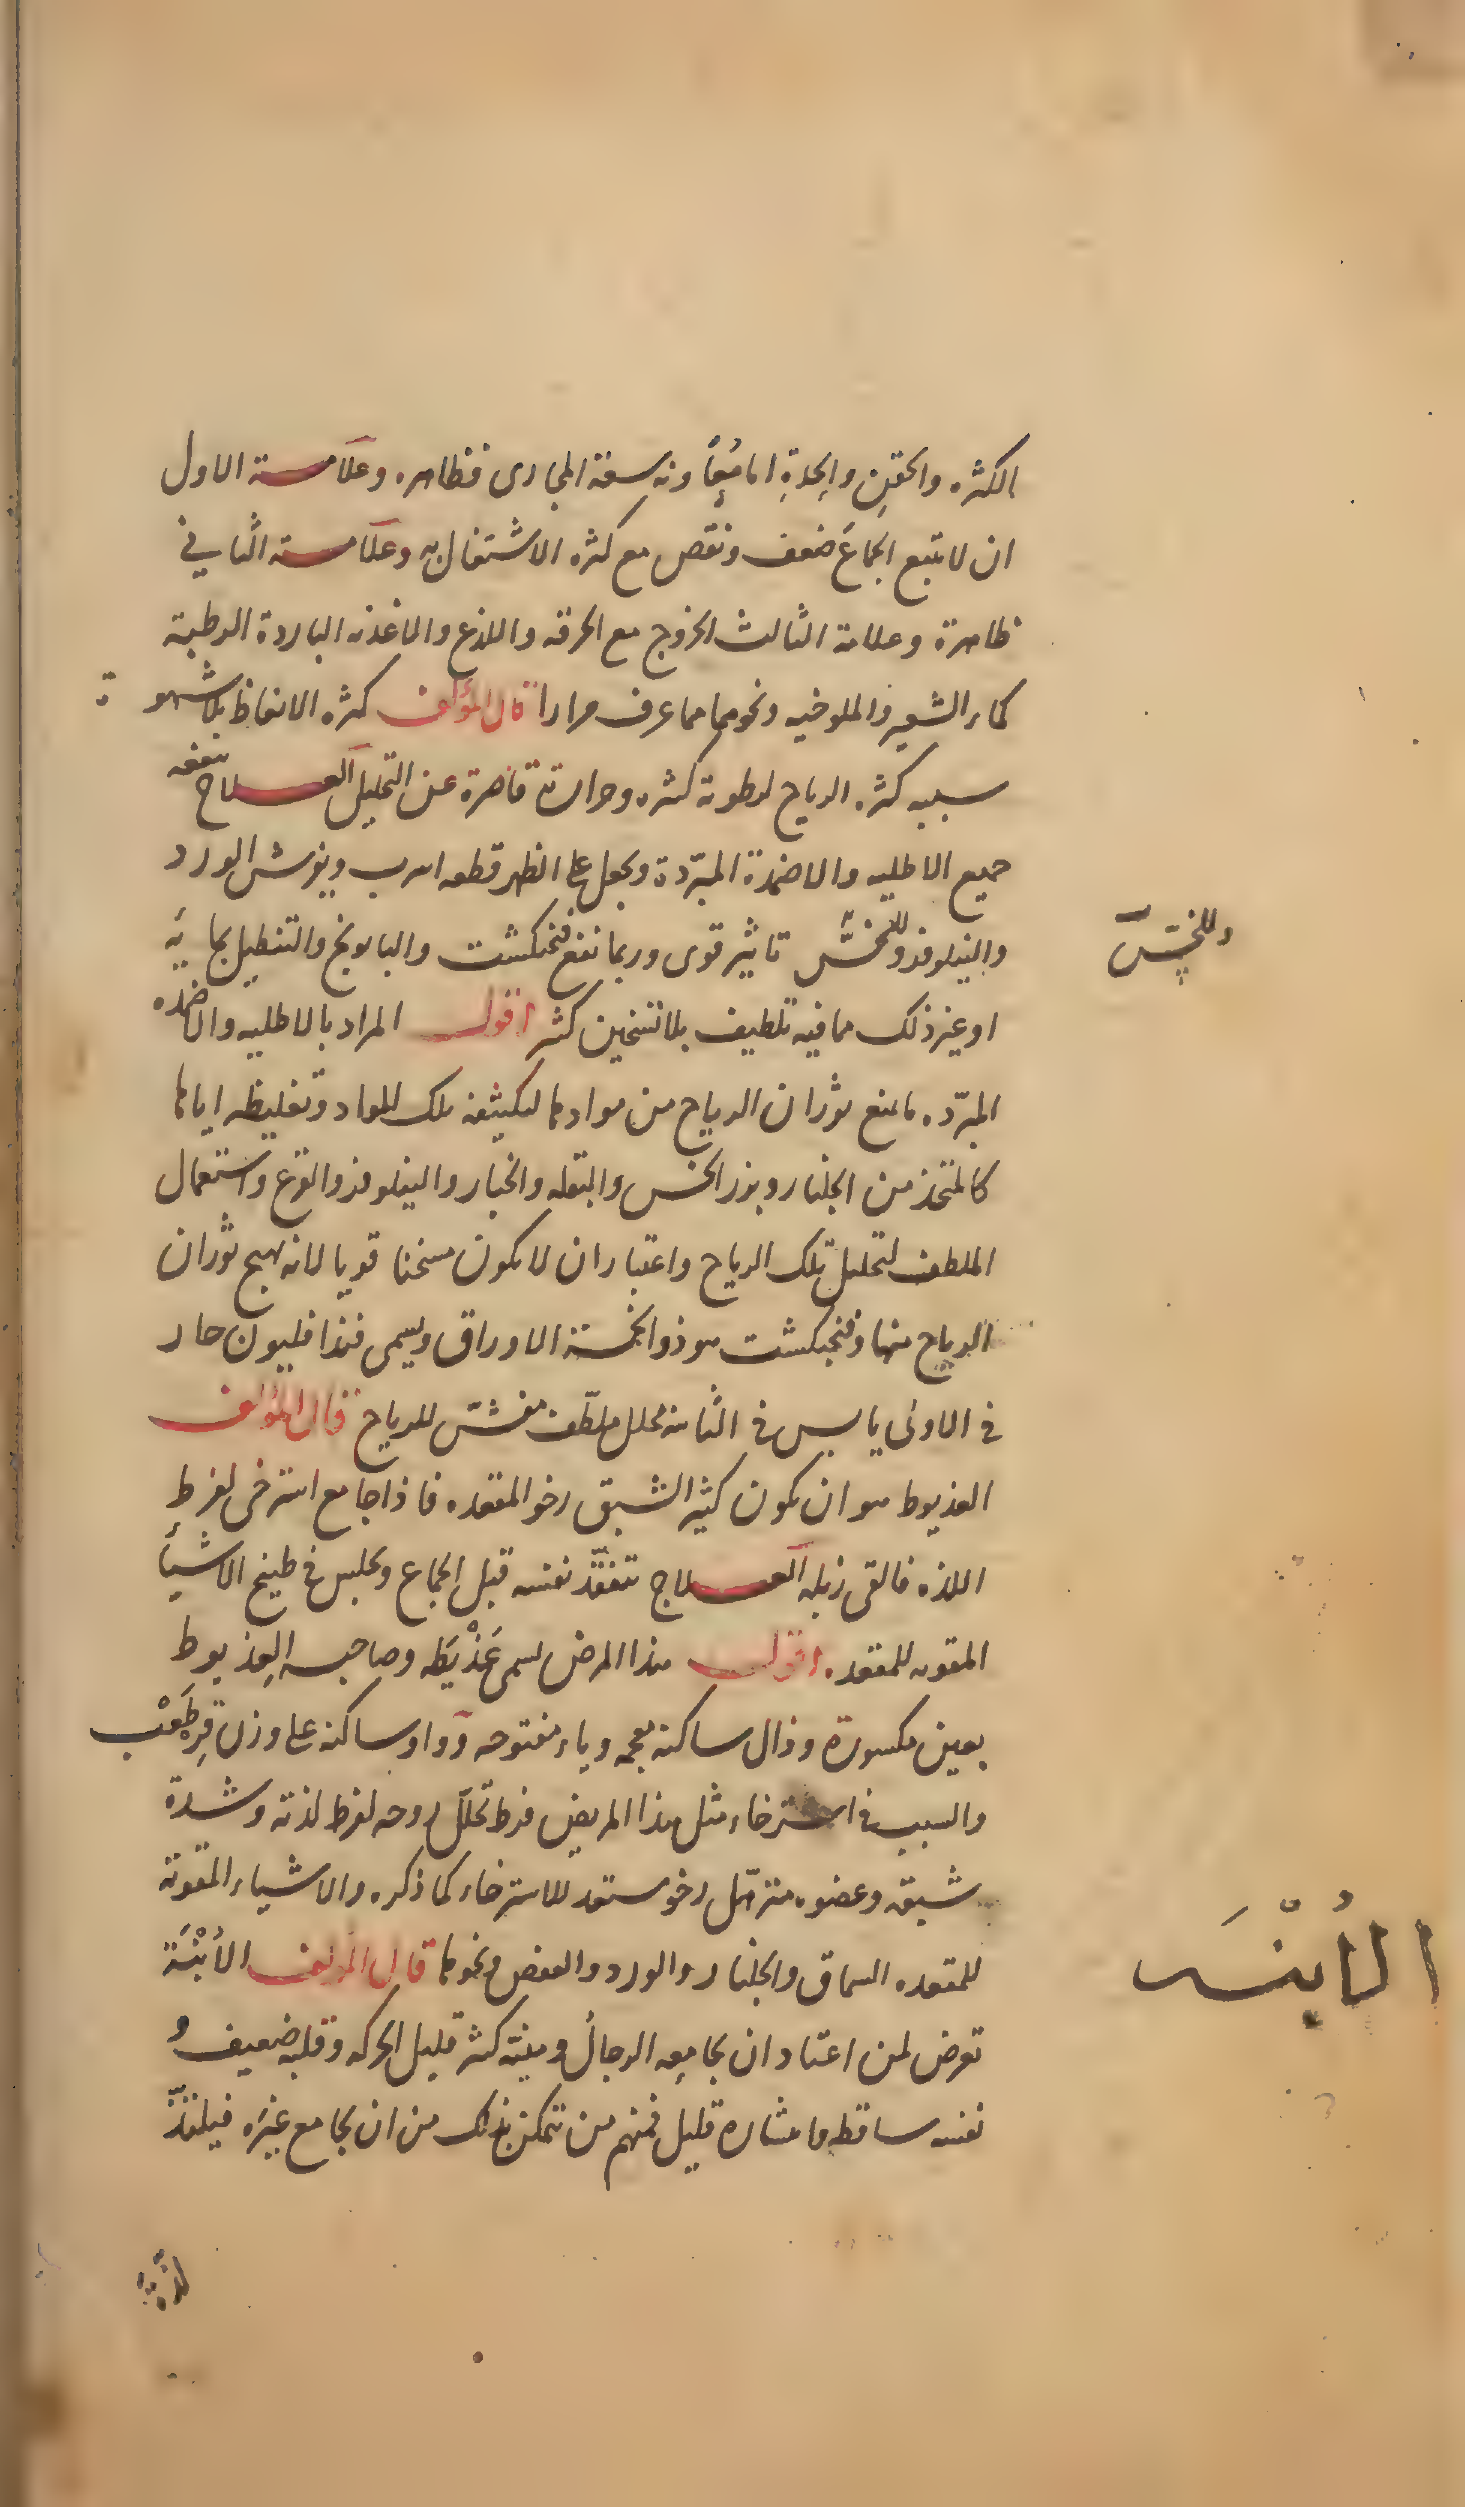 الكثره والحقن والحدة اما معًا ونه سعة المجارى فظاهره وعلامة الاول
ان لا يتبع الجماع ضعف ونقص مع كثره الاشتغال به وعلامة الثاني
ظاهرة وعلامة الثالث الخروج مع الحرقه واللذع والاغذيه الباردة الرطبة
كماء الشعير والملوخيه ونحوهما مما عرف مرارا قال المؤلف كثره الانعاظ بلا شهوة
سببه كثره الرياح لرطوبة كثره وحرارة قاصرة عن التحليل العلاج ينفعه
جميع الاطليه والاضمدة المبرّدة ويجعل على الظهر قطعه اسرب ويفرش الورد
والنيلوفر وللخسّ تاثير قوى وربما نفع فنجنكشت والبابونج والتنطيل بمايه
وللخسّ
او غير ذلك مما فيه تلطيف بلا تسخين كثير اقول المراد بالاطليه والاضمده
المبرّده ما يمنع ثوران الرياح من موادها لتكثيفه تلك المواد وتغليظه اياها
كالمتخذ من الجلنار وبزر الخس والبقله والخيار والنيلوفر والقرع واستعمال
الملطف لتحليل تلك الرياح واعتبار ان لا يكون مسخنا قويا لانه يهيج ثوران
الرياح منها وفنجنكشت هو ذو الخمسة الاوراق ويسمى فنذافليون حار
فى الاولى يابس فى الثانيه محلل ملطّف مفشّ للرياح قال المؤلف
العذيوط هو ان يكون كثير الشبق رخو المقعده فاذا جامع استرخى لفرط
اللذه فالقى زبله العلاج يتفقّد نفسه قبل الجماع ويجلس فى طبيخ الاشيأ
المقويه للمقعده اقول هذا المرض يسمى عَذْيَطَه وصاحبه العِذيوط
بعين مكسورة وذال ساكنة معجمه وياء مفتوحه وواو ساكنه على وزن قِرطَعْب
والسبب فى استرخاء مثل هذا المريض فرط تحلّل روحه لفرط لذته وشدة
شبقه وعضوه مترهّل رخو مستعد للاسترخاء كما ذكره والاشياء المقوية
للمقعده السماق والجلنار والورد والعفص ونحوها قال المؤلف الأبْنَة
الأُبنَّه
تعرض لمن اعتاد ان يجامعه الرجال ومنيّه كثير قليل الحركه وقلبه ضعيف و
نفسه ساقطه وانتشاره قليل فمنهم من يتمكن بذلك من ان يجامع غيره فيلتذّ
لذّة